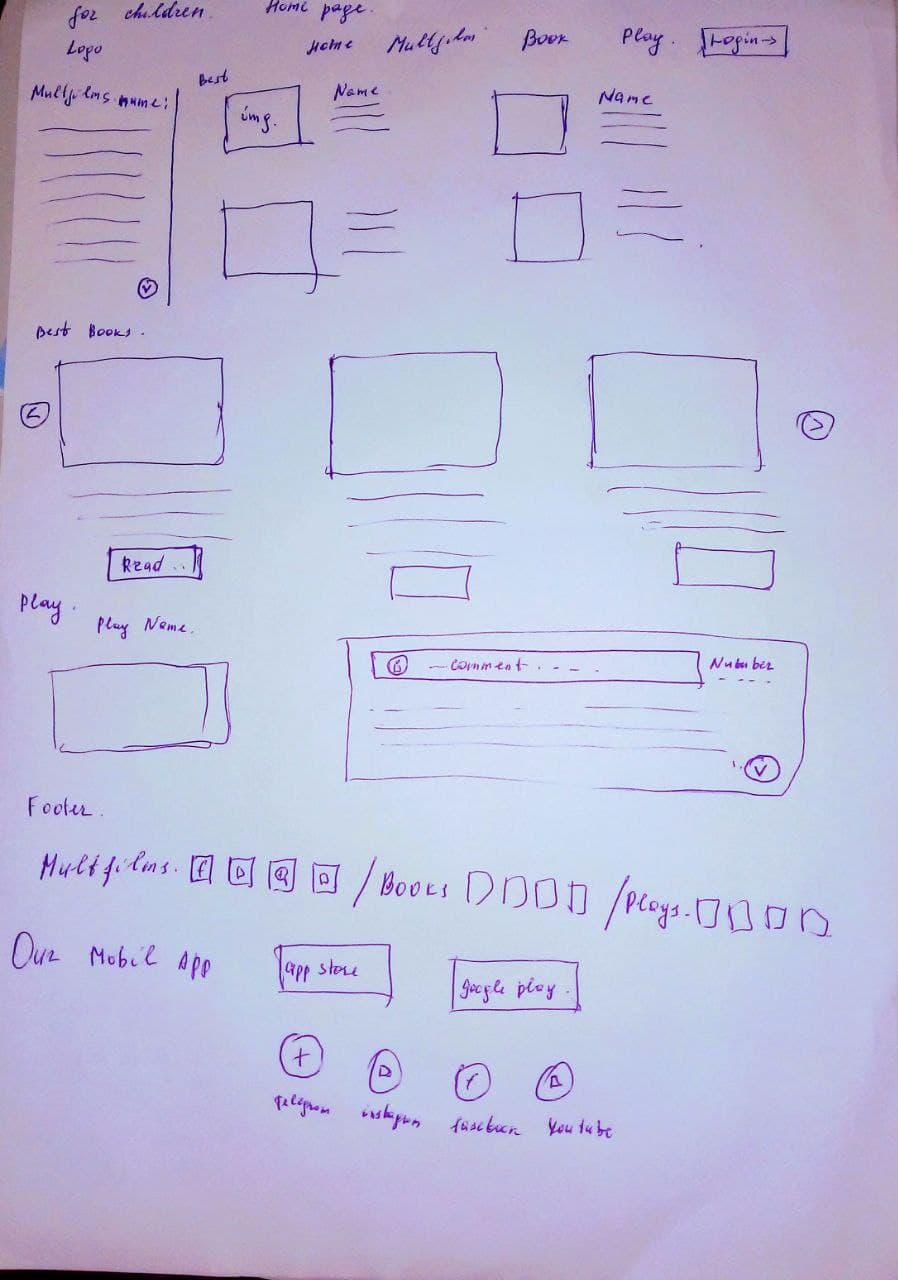 for children. Home page.
Logo Home Multfilm Book Play. Login→
Multfilms name:
Best
img.
Name
Name
Best Books.
Read ..
Play.
Play Name.
- Comment . - - .
Number
Footer.
Multfilms. f / Books / Plays.
Our Mobil App app store google play.
telegram instagram faseboок Youtube